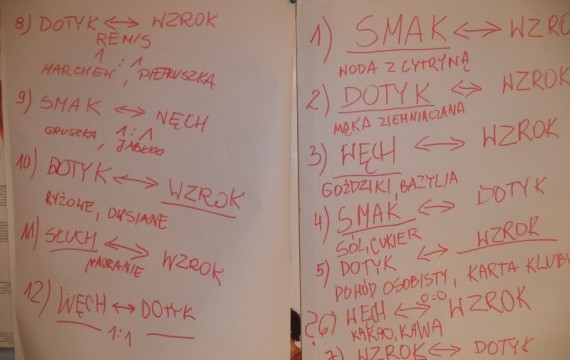 8) DOTYK ↔ WZROK
REMIS
1 : 1
MARCHEW, PIETRUSZKA
9) SMAK ↔ WĘCH
GRUSZKA, 1 : 1 JABŁKO
10) DOTYK ↔ WZROK
RYŻOWE, OWSIANE
11) SŁUCH ↔ WZROK
12) WĘCH ↔ DOTYK
1:1
1) SMAK ↔ WZRO
WODA Z CYTRYNĄ
2) DOTYK ↔ WZROK
MĄKA ZIEMNIACZANA
3) WĘCH ↔ WZROK
GOŹDZIKI, BAZYLIA
4) SMAK ↔ DOTYK
SÓL, CUKIER
5) DOTYK ↔ WZROK
DOWÓD OSOBISTY, KARTA KLUBU
?6) WĘCH ↔ 0:0 WZROK
KAKAO, KAWA
7) WZROK ↔ DOTYK